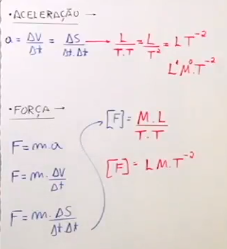 • ACELERAÇÃO —
a = ΔV/Δt = ΔS/Δt.Δt → L/T.T = L/T² = L T⁻²
L¹ M⁰.T⁻²
• FORÇA —
F = m.a
F = m. ΔV/Δt
F = m. ΔS/Δt Δt
[F] = M.L/T.T
[F] = L M.T⁻²